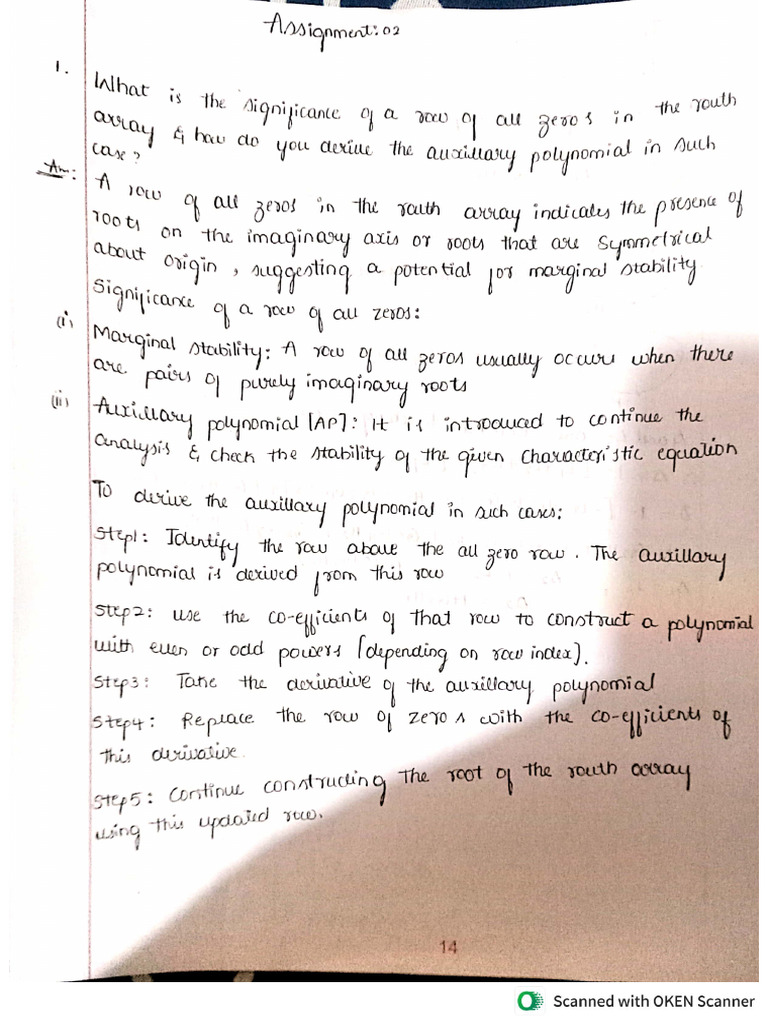 Assignment: 02
1. What is the significance of a row of all zeros in the routh
array & how do you derive the auxillary polynomial in such
case?
Ans: A row of all zeros in the routh array indicates the presence of
roots on the imaginary axis or roots that are symmetrical
about origin, suggesting a potential for marginal stability.
Significance of a row of all zeros:
(i) Marginal stability: A row of all zeros usually occurs when there
are pairs of purely imaginary roots
(ii) Auxillary polynomial [AP]: It is introduced to continue the
analysis & check the stability of the given characteristic equation
To derive the auxillary polynomial in such cases:
Step1: Identify the row above the all zero row. The auxillary
polynomial is derived from this row
Step2: use the co-efficients of that row to construct a polynomial
with even or odd powers [depending on row index].
Step3: Take the derivative of the auxillary polynomial
Step4: Replace the row of zeros with the co-efficients of
this derivative.
Step5: Continue constructing the root of the routh array
using this updated row.
14
Scanned with OKEN Scanner